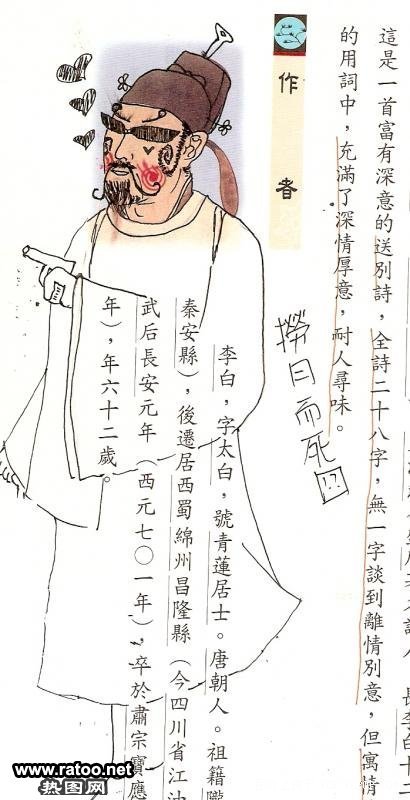 這是一首富有深意的送別詩，全詩二十八字，無一字談到離情別意，但寓情
的用詞中，充滿了深情厚意，耐人尋味。
作者
撈月而死囧
李白，字太白，號青蓮居士。唐朝人。祖籍隴
秦安縣），後遷居西蜀綿州昌隆縣（今四川省江油
武后長安元年（西元七○一年），卒於肅宗寶應
年），年六十二歲。
www.ratoo.net
热图网